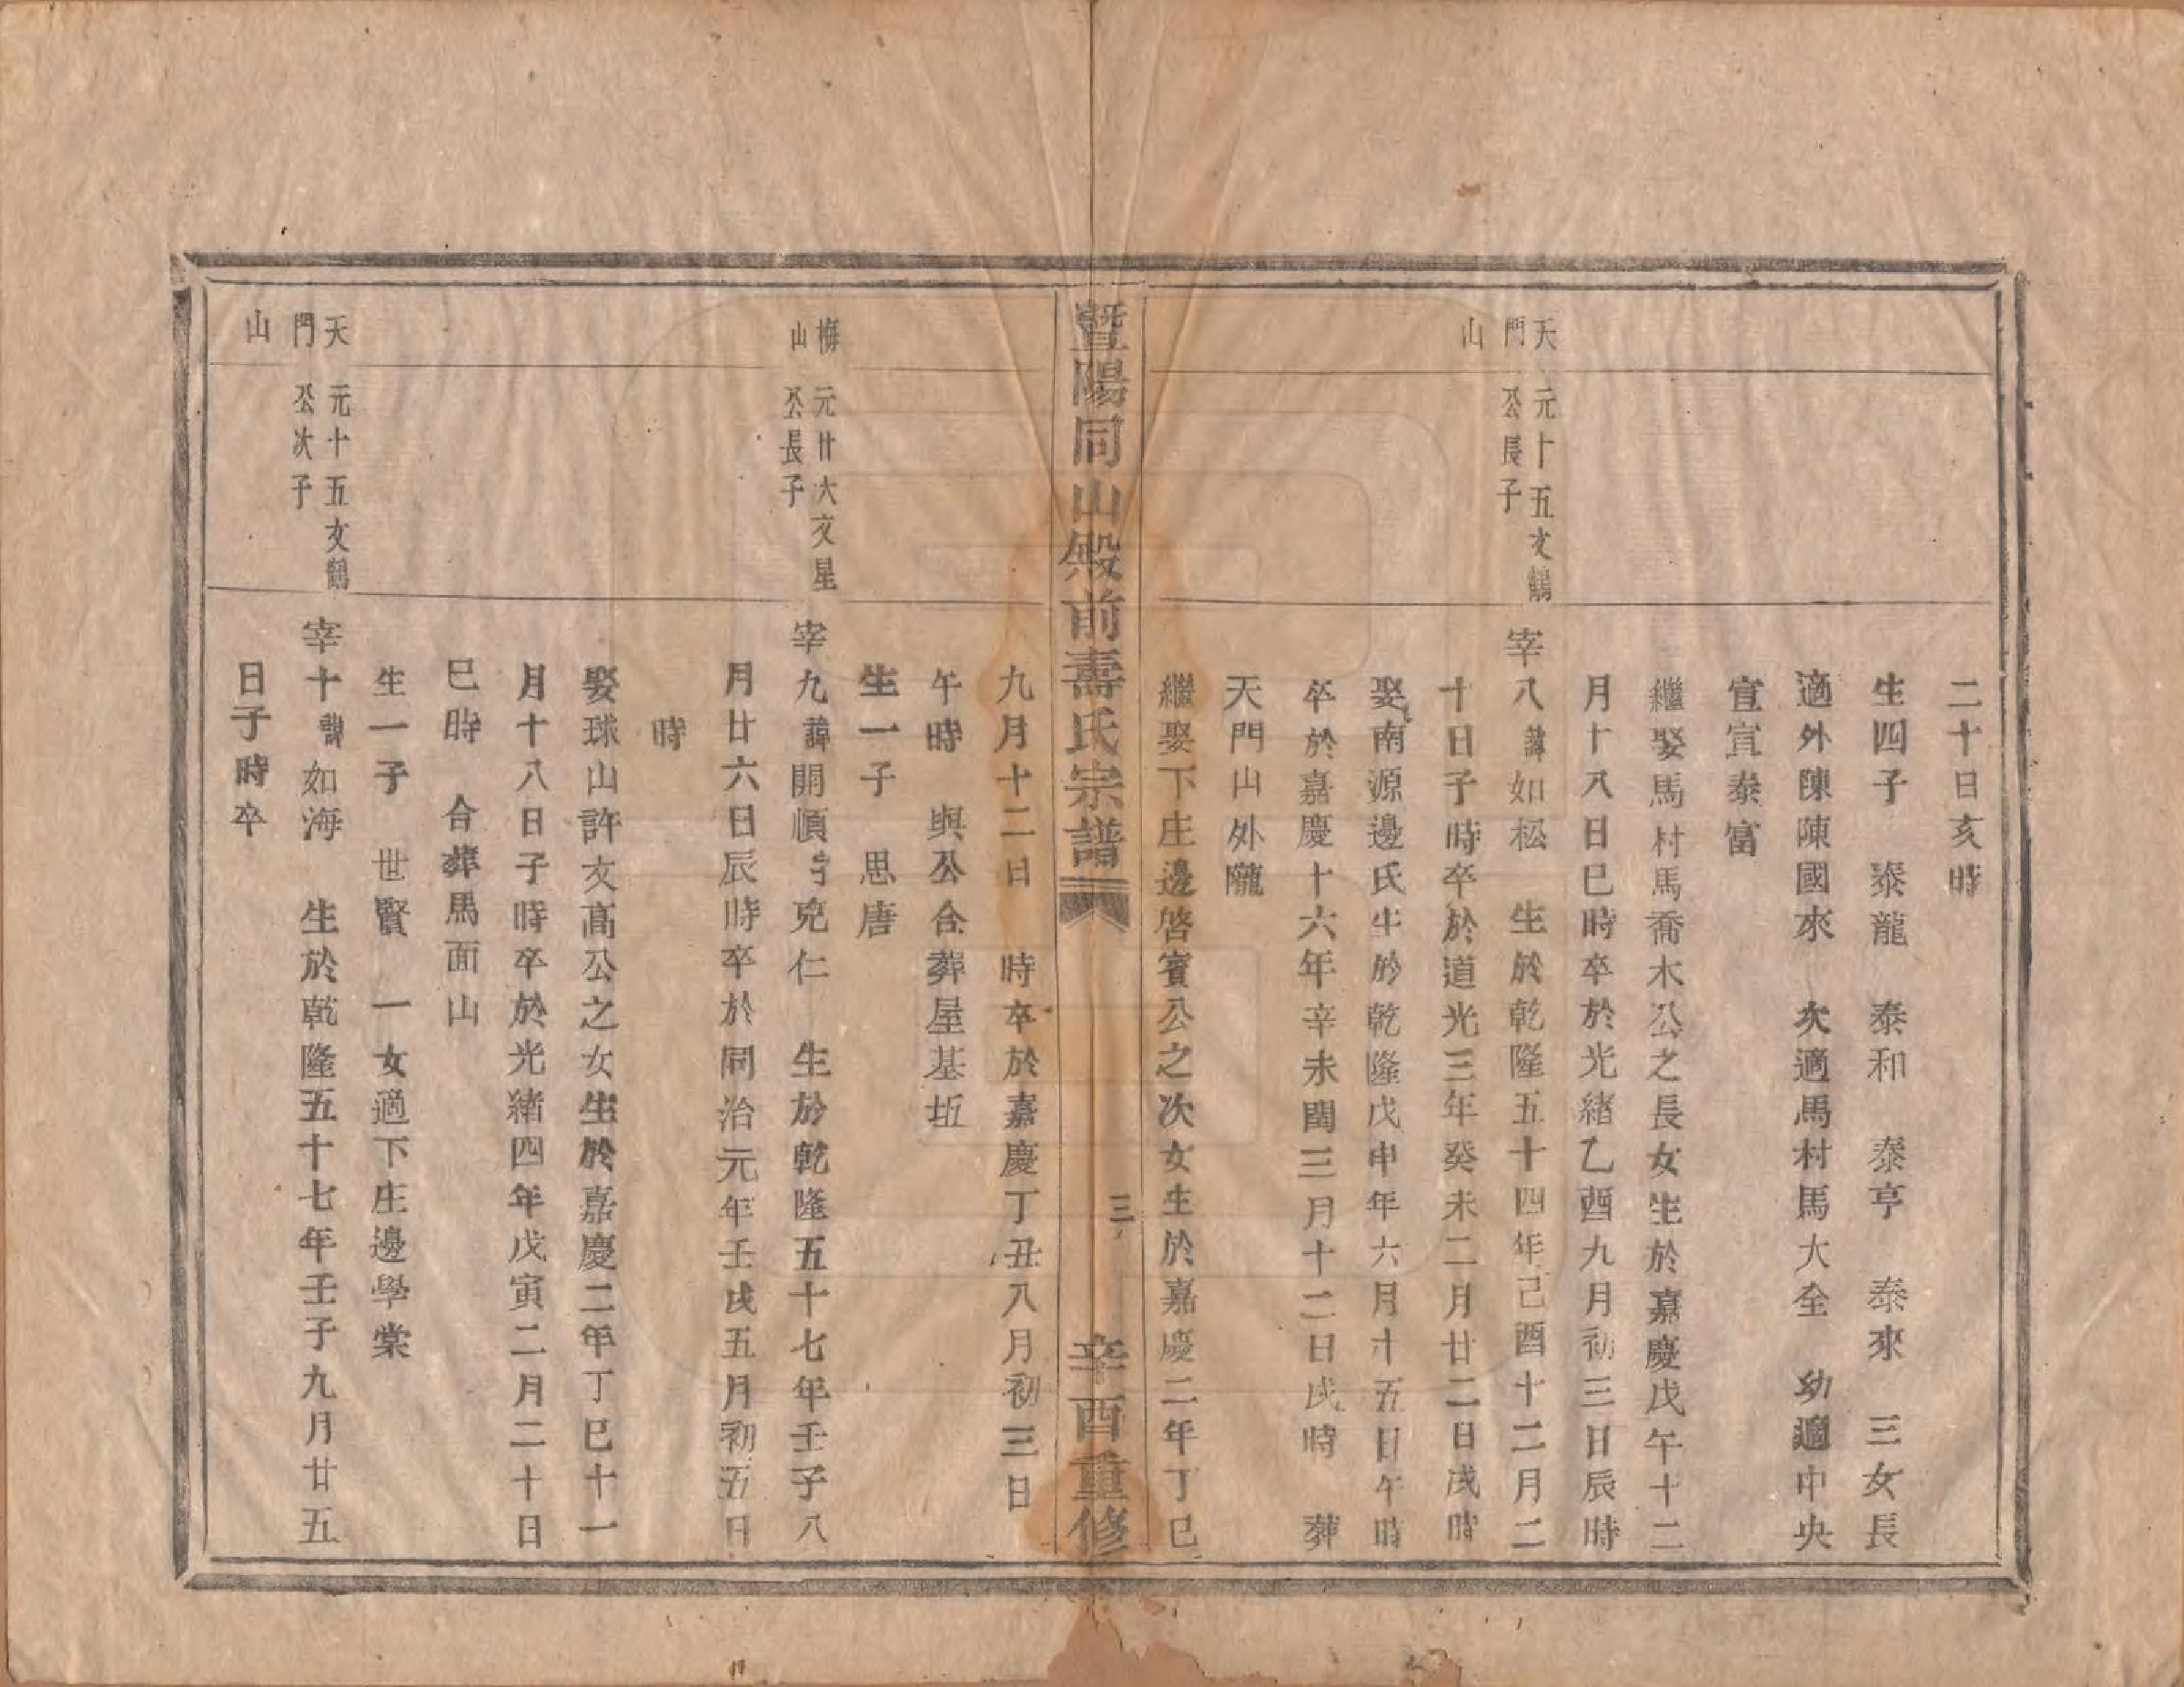 二十日亥時
生四子　泰龍　泰和　泰亨　泰來　三女長
適外陳陳國來　次適馬村馬大全　幼適中央
宣宣泰富
繼娶馬村馬喬木公之長女生於嘉慶戊午十二
月十八日巳時卒於光緒乙酉九月初三日辰時
天門山
元十五文鶴
公長子
宰八諱如松　生於乾隆五十四年己酉十二月二
十日子時卒於道光三年癸未二月廿二日戌時
娶南源邊氏生於乾隆戊申年六月十五日午時
卒於嘉慶十六年辛未閏三月十二日戌時　葬
天門山外隴
繼娶下庄邊啓賓公之次女生於嘉慶二年丁巳
暨陽同山殿前壽氏宗譜
三
辛酉重修
九月十二日　時卒於嘉慶丁丑八月初三日
午時　與公合葬屋基坵
生一子　思唐
梅山
元廿大文星
公長子
宰九諱開順字克仁　生於乾隆五十七年壬子八
月廿六日辰時卒於同治元年壬戌五月初五日
時
娶球山許文高公之女生於嘉慶二年丁巳十一
月十八日子時卒於光緒四年戊寅二月二十日
巳時　合葬馬面山
生一子　世賢　一女適下庄邊學棠
天門山
元十五文鶴
公次子
宰十諱如海　生於乾隆五十七年壬子九月廿五
日子時卒